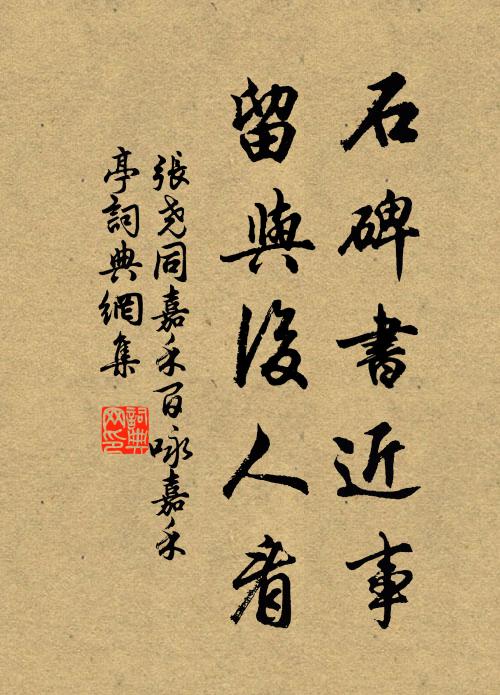 石碑書近事
留與後人看
張堯同嘉禾百咏嘉禾
亭詞典網集
詞典
网印